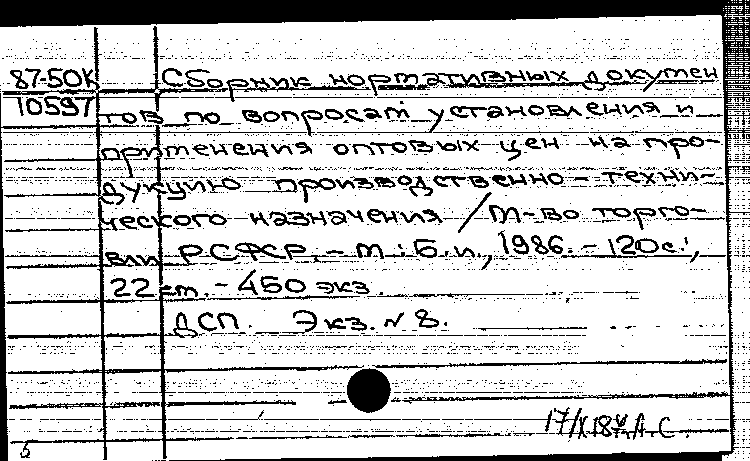 87-50к Сборник нормативных докумен
10597 тов по вопросам установления и
применения оптовых цен на про-
дукцию производственно-техни-
ческого назначения / М-во торго-
вли РСФСР. - М.: Б.и., 1986. - 120с.;
22 см. - 450 экз.
ДСП. Экз. N 8.
А.С.
5